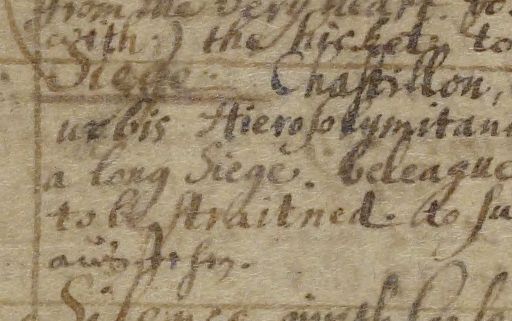 from the very heart. yo
with:) the pirkel, to
Siege. Chastillon,
urbis Hierosolymitan
a long Siege. beleague
to be straitned. to su
Silence